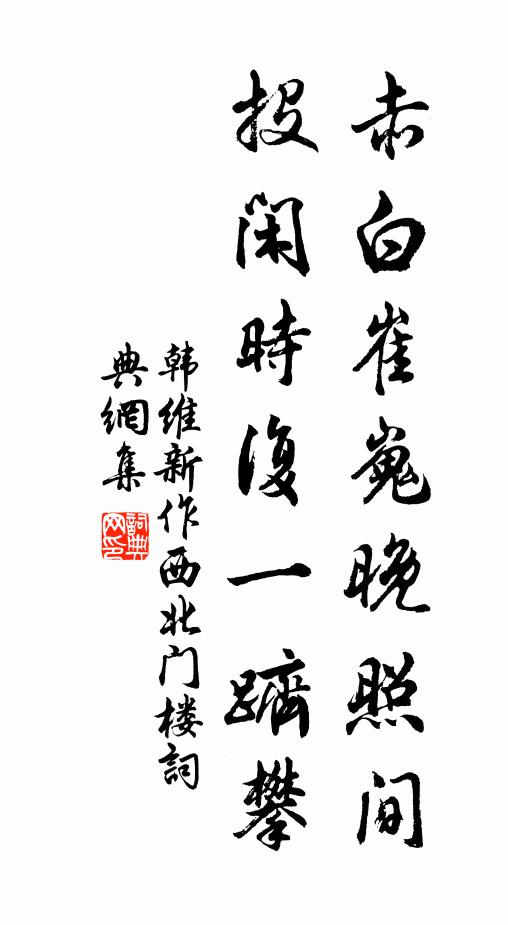 赤白崔嵬晚照间
投闲時復一躋攀
韩维新作西北门楼詞
典網集
詞典網印